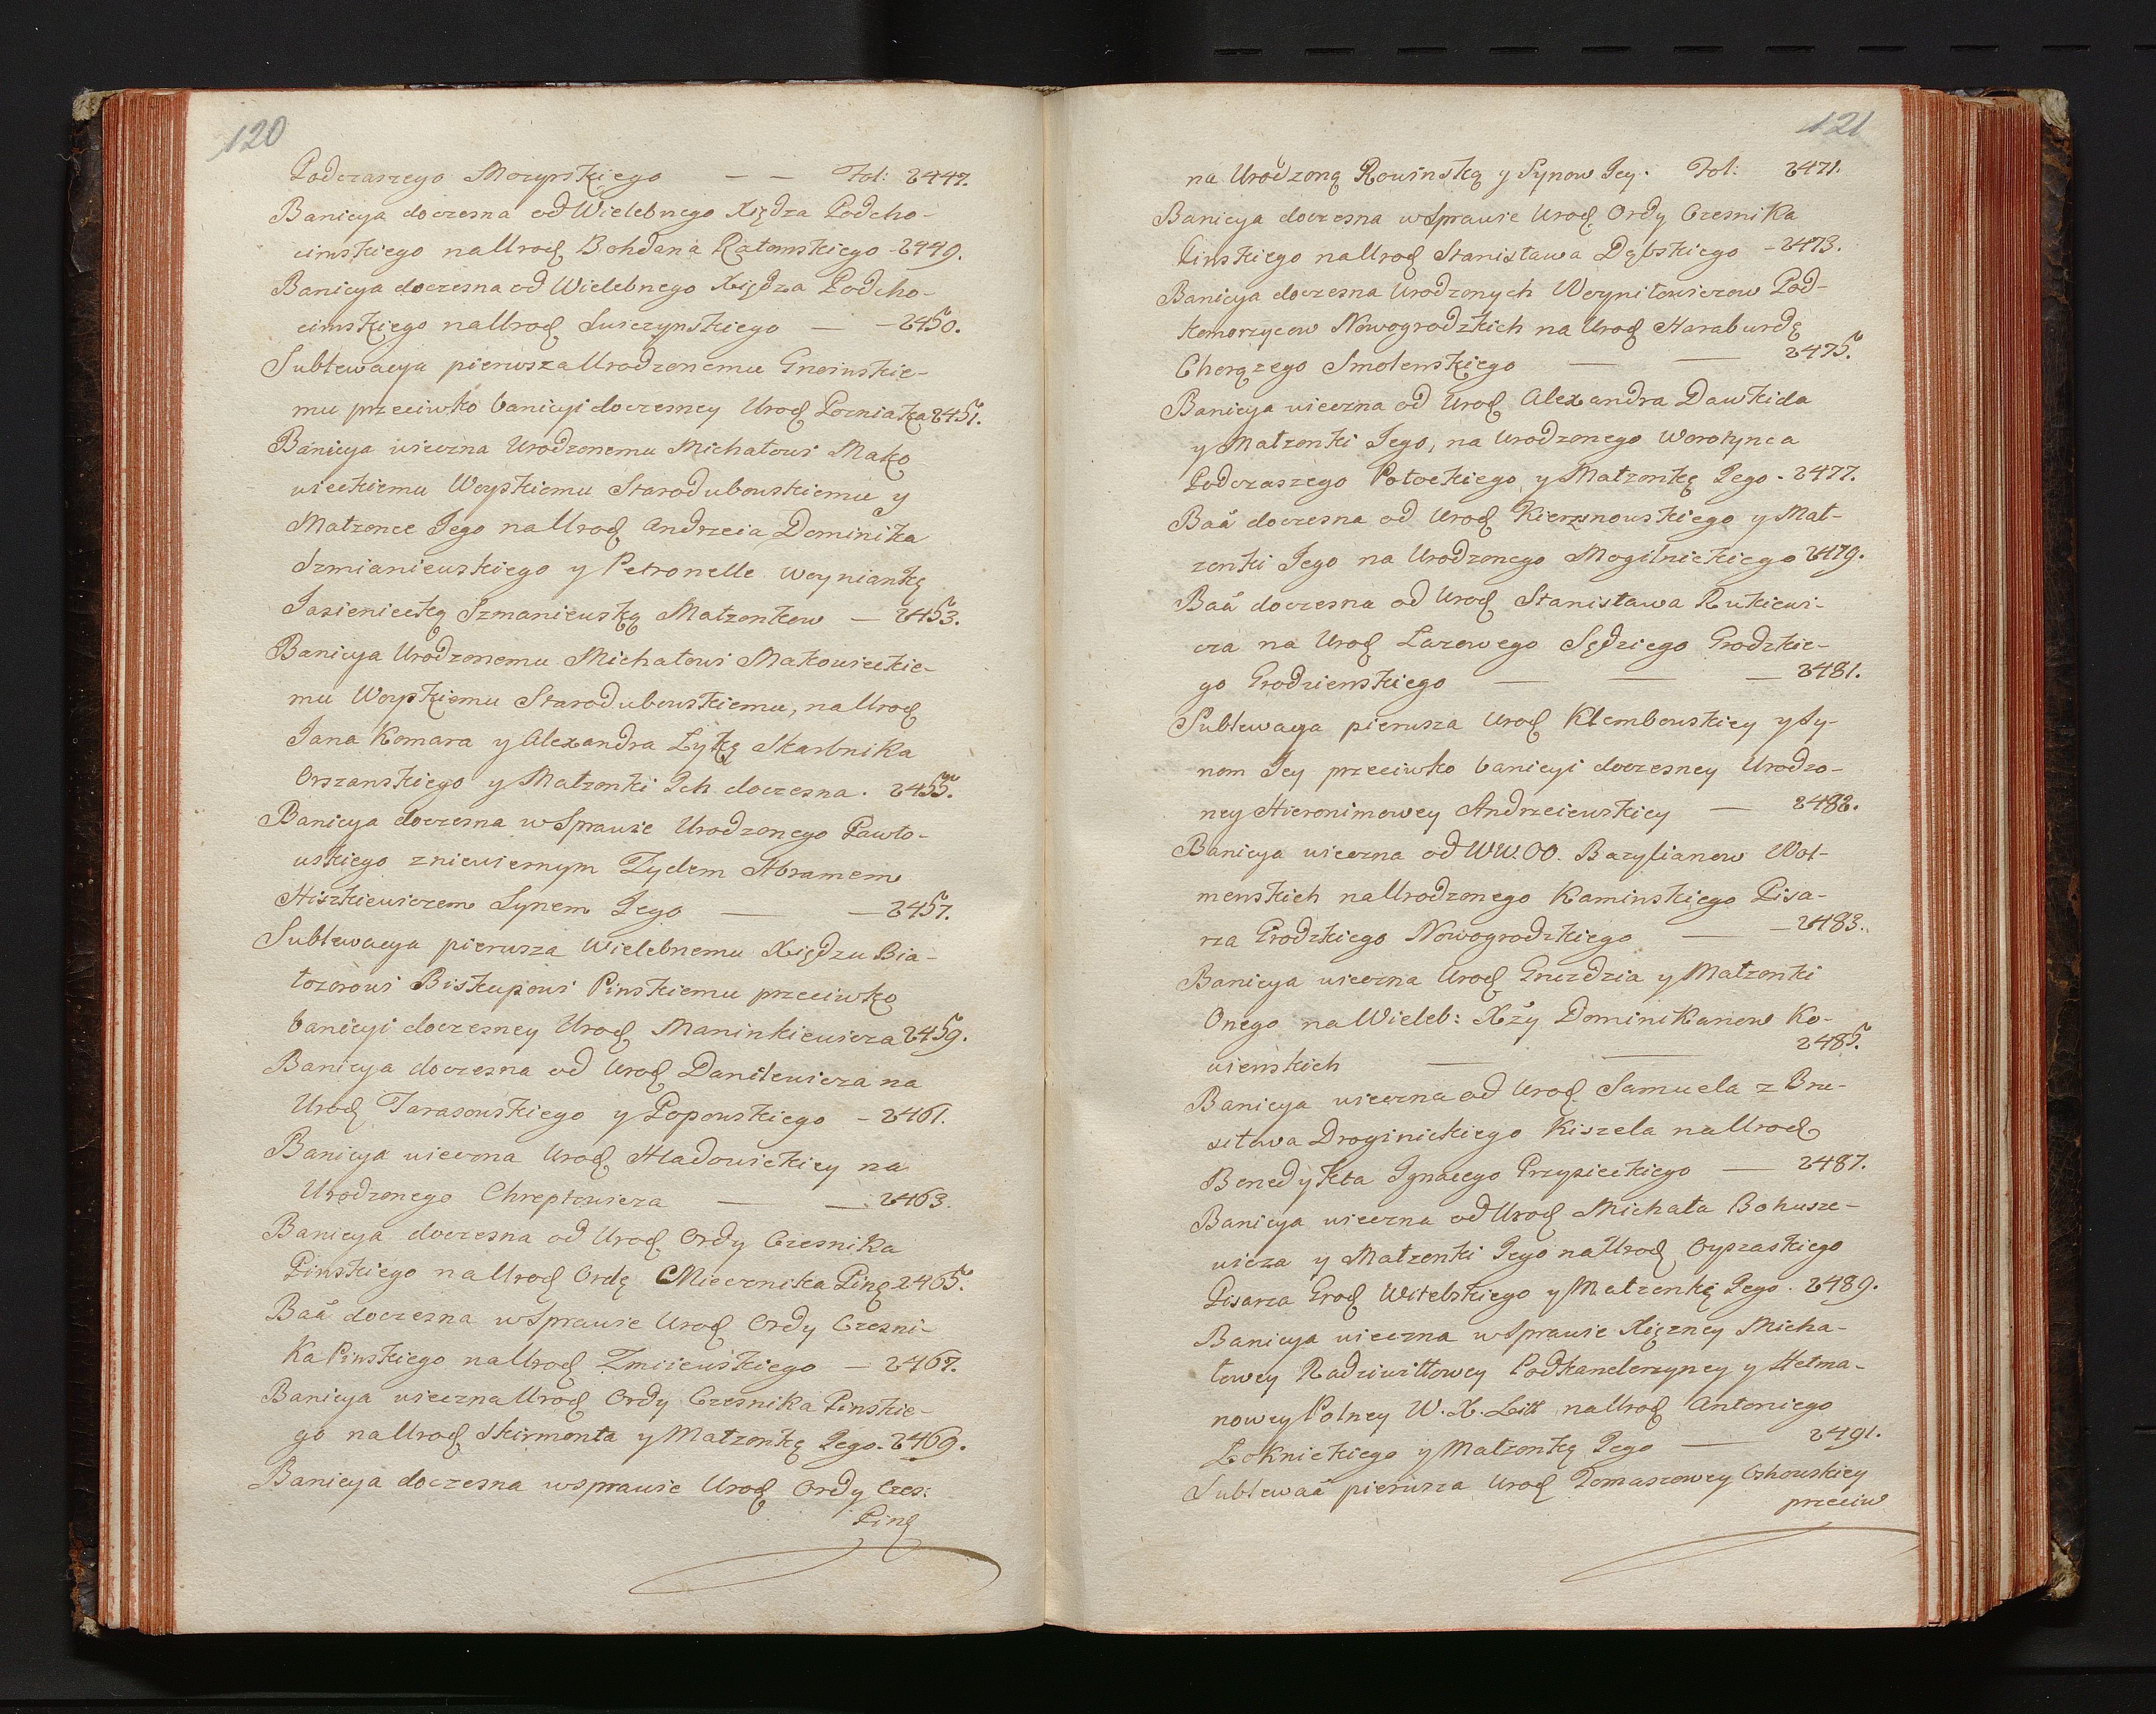 120
Podczaszego Mozyrskiego — — Fol: 2447.
Banicya doczesna od Wielebnego Xiędza Podcho-
cimskiego na Urod Bohdana Ratomskiego - 2449.
Banicya doczesna od Wielebnego Xiędza Podcho-
cimskiego na Urod Suszczynskiego — - 2450.
Sublewacya pierwsza Urodzonemu Gnoinskie-
mu przeciwko banicyi doczesney Urod Pozniaka 2451.
Banicya wieczna Urodzonemu Michałowi Mako
wieckiemu Woyskiemu Starodubowskiemu y
Małzonce Jego na Urod Andrzeia Dominika
Szmianiewskiego y Petronelle Woyniankę
Jasieniecką Szmaniewską Małzonkow — 2453.
Banicya Urodzonemu Michałowi Makowieckie-
mu Woyskiemu Starodubowskiemu, na Urod
Jana Komara y Alexandra Łykę Skarbnika
Orszanskiego y Małzonki Ich doczesna. 2455.
Banicya doczesna w Sprawie Urodzonego Pawło-
wskiego z niewiernym Zydem Abramem
Hiszkiewiczem Synem Jego — — 2457.
Sublewacya pierwsza Wielebnemu Xiędzu Bia-
łozorowi Biskupowi Pinskiemu przeciwko
banicyi doczesney Urod Maninkiewicza 2459.
Banicya doczesna od Urod Danilewicza na
Urod Tarasowskiego y Popowskiego - 2461.
Banicya wieczna Urod Hladowickiey na
Urodzonego Chreptowicza — — 2463.
Banicya doczesna od Urod Ordy Czesnika
Pinskiego na Urod Ordę Miecznika Pinę 2465.
Baã doczesna w Sprawie Urod Ordy Czesni-
ka Pinskiego na Urod Zmiiewskiego — 2467.
Banicya wieczna Urod Ordy Czesnika Pinskie-
go na Urod Skirmonta y Małzonkę Jego. 2469.
Banicya doczesna w sprawie Urod Ordy Czes:
Pinę
121
na Urodzoną Rowinską y Synow Jey. Fol: 2471.
Banicya doczesna w Sprawie Urod Ordy Czesnika
Pinskiego na Urod Stanisława Dębskiego - 2473.
Banicya doczesna Urodzonych Woyniłowiczow Pod-
komorzycow Nowogrodzkich na Urod Haraburdę
Chorązego Smolenskiego — — 2475.
Banicya wieczna od Urod Alexandra Dawkida
y Małzonki Jego, na Urodzonego Worotynca
Podczaszego Połockiego y Małzonkę Jego. 2477.
Baã doczesna od Urod Kierznowskiego y Mał-
zonki Jego na Urodzonego Mogilnickiego 2479.
Baã doczesna od Urod Stanisława Rukiewi-
cza na Urod Lazowego Sędziego Grodzkie-
go Grodzienskiego — — — 2481.
Sublewacya pierwsza Urod Klembowskiey y Sy-
nom Jey przeciwko banicyi doczesney Urodzo-
ney Hieronimowey Andrzeiewskiey — 2482.
Banicya wieczna od WW.OO. Bazylianow Wol-
menskich na Urodzonego Kaminskiego Pisa-
rza Grodzkiego Nowogrodzkiego — — 2483.
Banicya wieczna Urod Gnezdzia y Małzonki
Onego na Wieleb: Xzy Dominikanow Ko-
wienskich — — 2485.
Banicya wieczna od Urod Samuela z Bru-
siłowa Droginickiego Kiszela na Urod
Benedykta Ignacego Przysieckiego — 2487.
Banicya wieczna od Urod Michała Bohusze-
wicza y Małzonki Jego na Urod Cypzaskiego
Pisarza Grod Witebskiego y Małzonkę Jego. 2489.
Banicya wieczna w Sprawie Xięzney Micha-
łowey Radziwiłłowey Podkanclerzyney y Hetma-
nowey Polney W. X. Litt na Urod Antoniego
Łoknickiego y Małzonkę Jego — 2491.
Sublewaã pierwsza Urod Tomaszowey Czhowskiey
przeciw